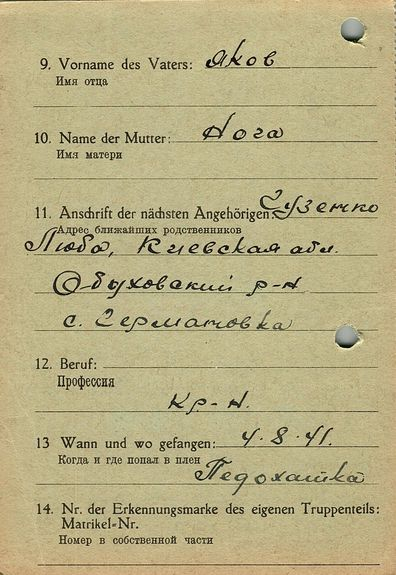 9. Vorname des Vaters: Яков
Имя отца
10. Name der Mutter: Нога
Имя матери
11. Anschrift der nächsten Angehörigen: Гузенко
Адрес ближайших родственников
Люба, Киевская обл.
Обуховский р-н
с. Германовка
12. Beruf:
Профессия
Кр-н.
13 Wann und wo gefangen: 4.8.41.
Когда и где попал в плен
14. Nr. der Erkennungsmarke des eigenen Truppenteils:
Matrikel-Nr.
Номер в собственной части